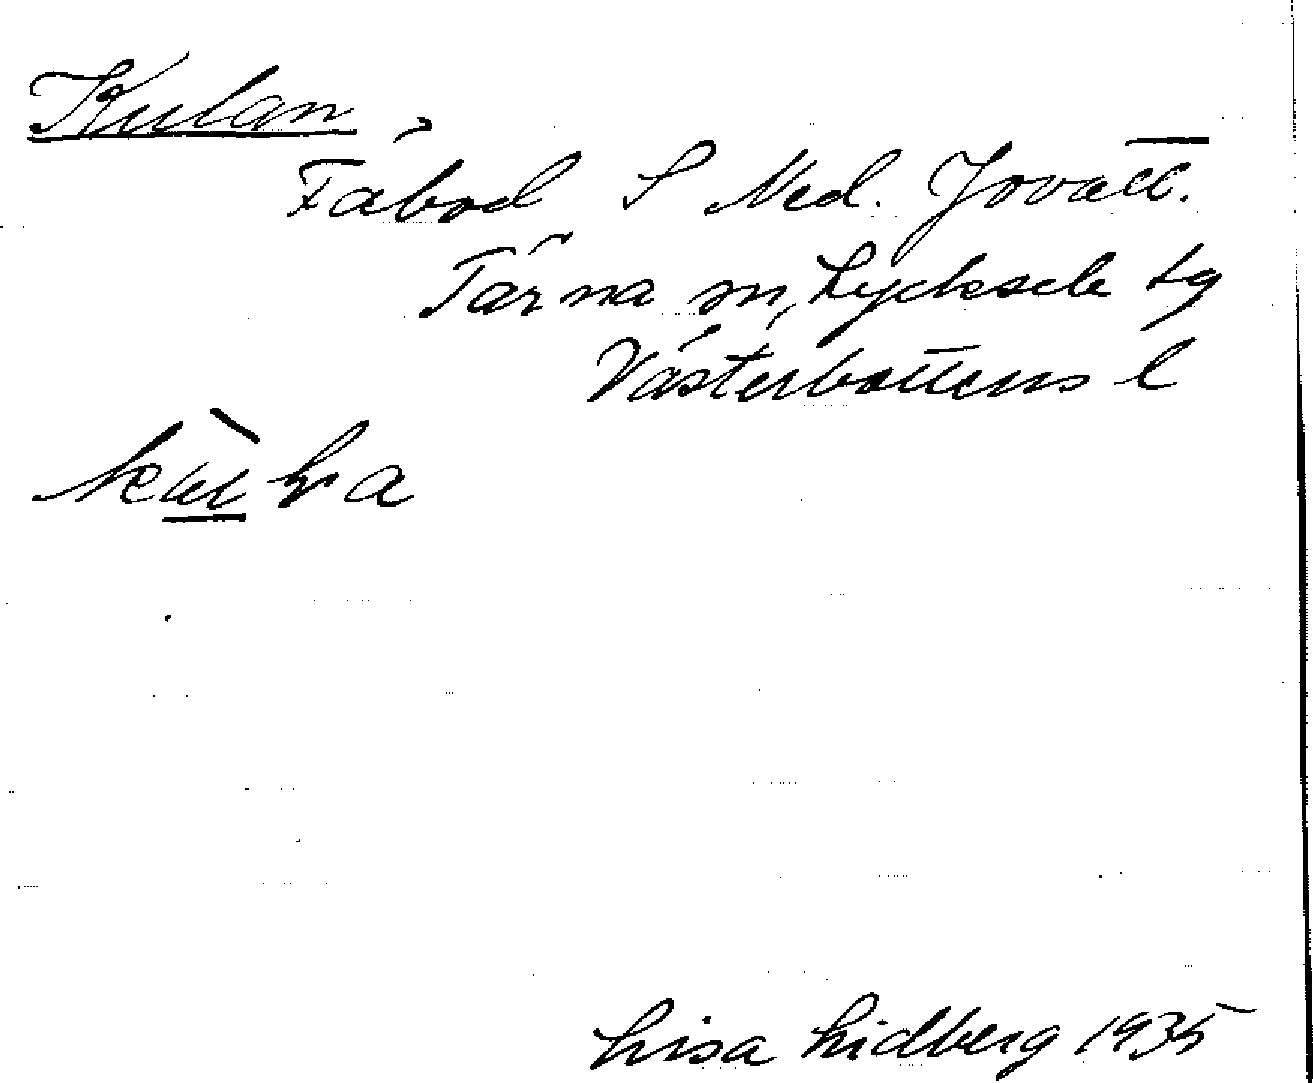 Kulan,
Fäbod S Ned. Jovatt.
Tärna sn, Lycksele lg
Västerbottens l
Lisa Lidberg 1935